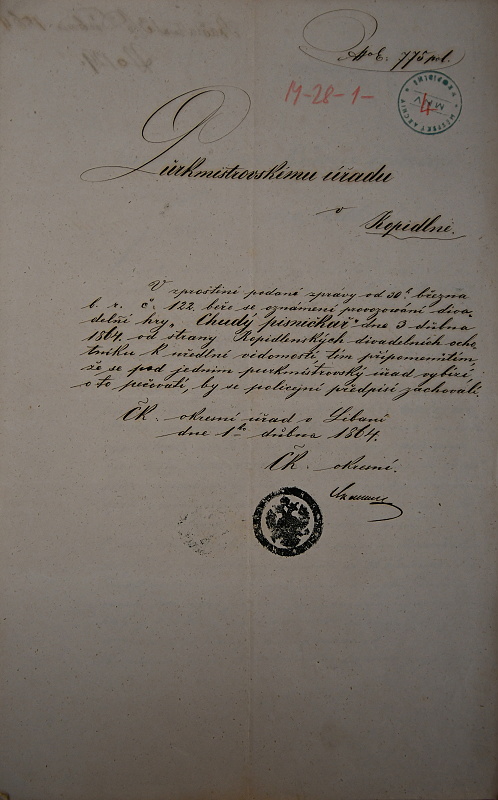 775 pol.
M-28-1-
4
Purkmistrovskímu úřadu
v
Kopidlně.
V zproštění podané zprávy od 30ho března
b. r. č. 122. běře se oznámení provozování diva-
delní hry „Chudý písničkář" dne 3 dubna
1864. od strany Kopidlenských divadelních ocho-
tníku k úřední vědomosti tím připomenitím
že se pod jedním purkmistrovský úřad vybízí
o to pečovati, by se policejní předpisí zachovali.
ČK. okresní úřad v Libani
dne 1ho dubna 1864.
ČK. okresní.